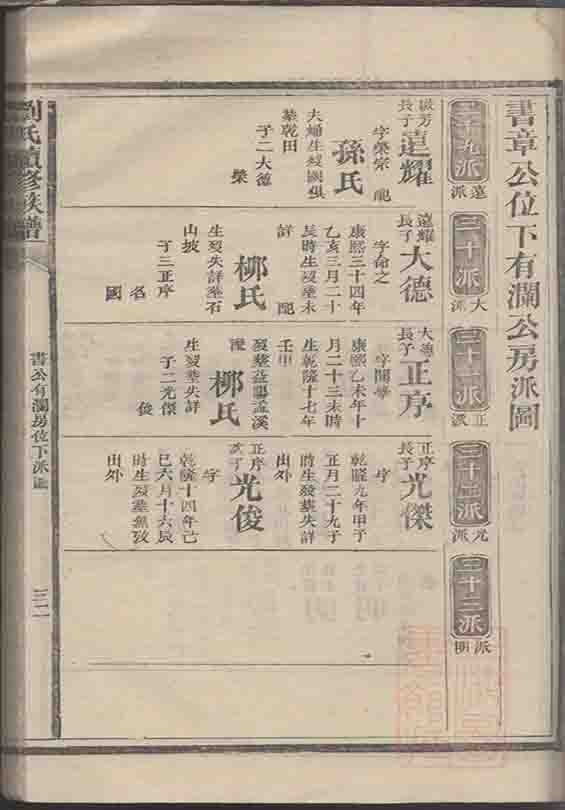 書章公位下有瀾公房派圖
十九派
遠派
長子遠耀
字榮宗
孫氏
夫婦生歿
葬乾田
子二大德
榮
二十派
大派
遠耀長子大德
字命之
康熙三十四年
乙亥三月二十
長時生歿葬未
詳
配
柳氏
生歿失詳葬石
山坡
子三正序
名
國
二十一派
正派
大德長子正序
康熙乙未年十
月二十三未時
生乾隆十七年
壬申
歿葬益陽孟溪
配
柳氏
生歿葬失詳
子二光傑
俊
二十二派
光派
正序長子光傑
字
乾隆九年甲子
正月二十九子
時生發葬失詳
出外
正序次子光俊
字
乾隆十四年己
巳六月十六辰
時生歿葬無攷
出外
二十三派
明派
劉氏續修族譜
書公有瀾房位下派圖
三二